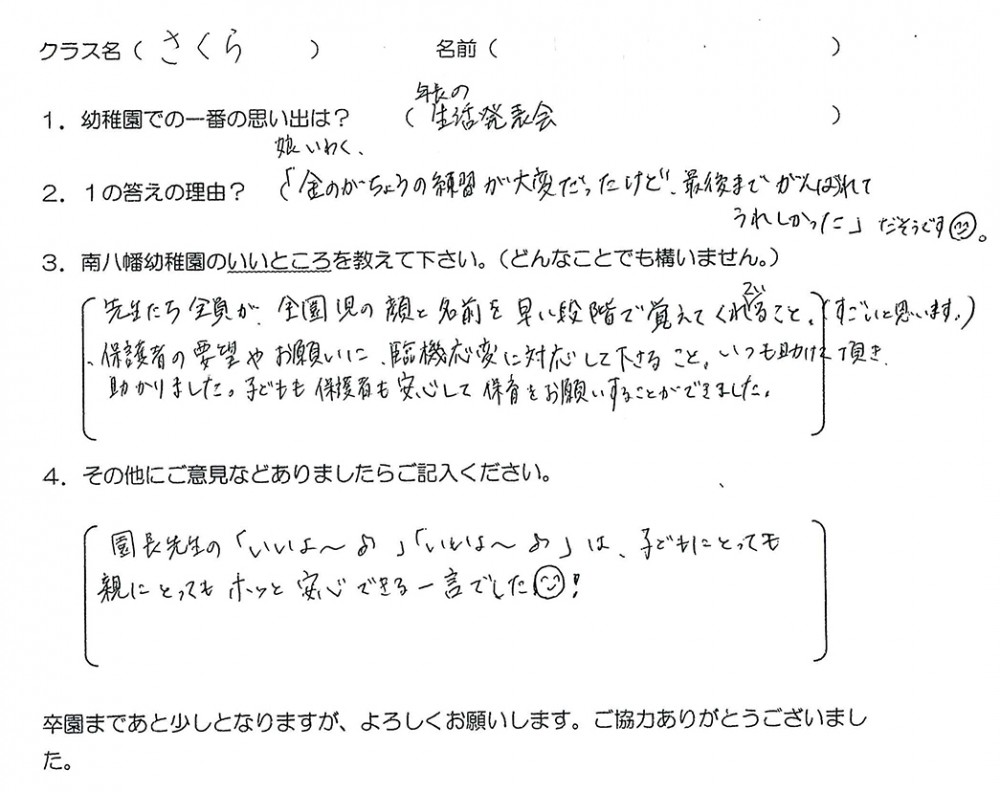 クラス名（ さくら ） 名前（ ）
年長の
1．幼稚園での一番の思い出は？ （ 生活発表会 ）
娘いわく、
2．1の答えの理由？ 「金のがちょうの練習が大変だったけど、最後までがんばれて
うれしかった」だそうです。
3．南八幡幼稚園のいいところを教えて下さい。（どんなことでも構いません。）
先生たち全員が、全園児の顔と名前を早い段階で覚えてくれること、（すごいと思います。）
、保護者の要望やお願いに、臨機応変に対応して下さること。いつも助けて頂き
助かりました。子どもも保護者も安心して保育をお願いすることができました。
4．その他にご意見などありましたらご記入ください。
園長先生の「いいよ〜お」「いいよ〜お」は、子どもにとっても
親にとってもホッと安心できる一言でした!
卒園まであと少しとなりますが、よろしくお願いします。ご協力ありがとうございまし
た。